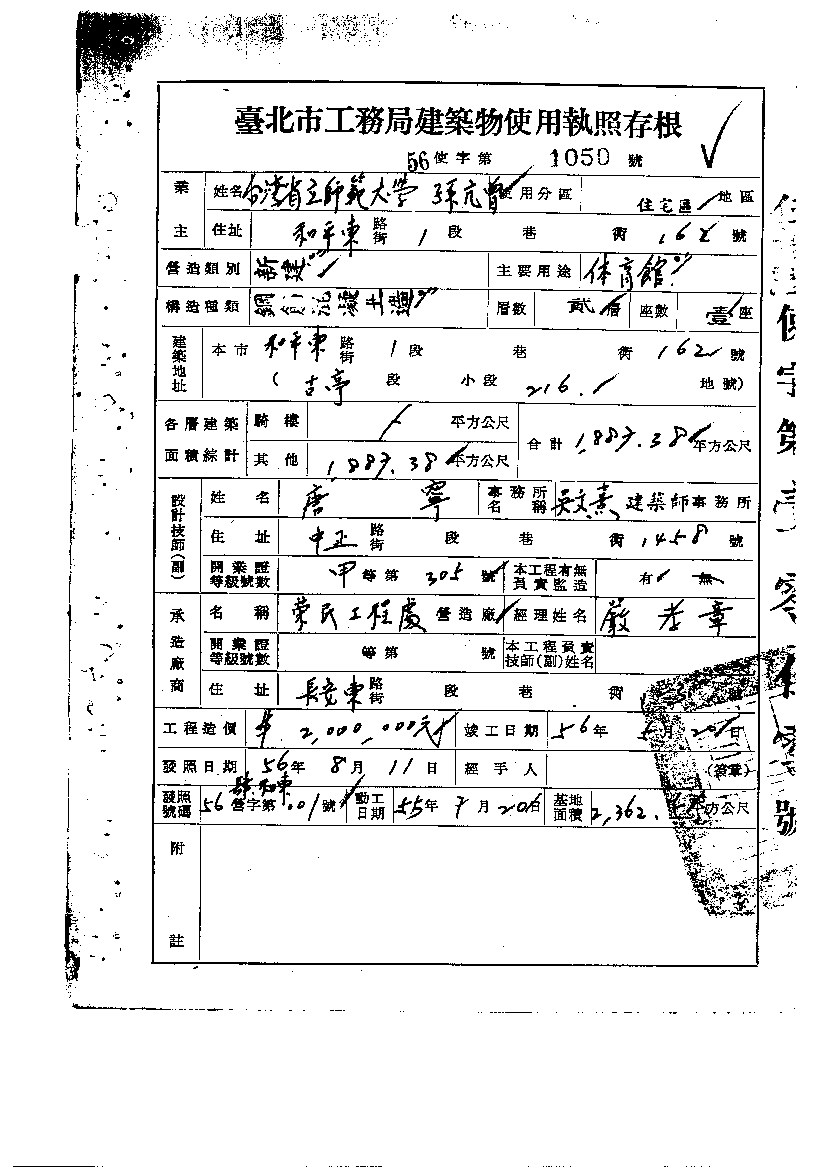 臺北市工務局建築物使用執照存根
56 使字第 1050 號
業主 姓名 台灣省立師範大學 孫亢曾 使用分區 住宅區 地區
住址 和平東 路街 1 段 巷 街 162 號
營造類別 新建 主要用途 体育館
構造種類 鋼筋混凝土造 層數 貳層 座數 壹座
建築地址 本市 和平東 路街 1 段 巷 街 162 號
( 古亭 段 小段 216. 地號)
各層建築面積綜計 騎樓 平方公尺 合計 1,887.38 平方公尺
其他 1,887.38 平方公尺
設計技師(副) 姓名 唐寧 事務所名稱 吳文熹 建築師事務所
住址 中正 路街 段 巷 街 1458 號
開業證等級號數 甲 等第 305 號 本工程有無負責監造 有 無
承造廠商 名稱 榮民工程處 營造廠 經理姓名 嚴孝章
開業證等級號數 等第 號 本工程負責技師(副)姓名
住址 長安東 路街 段 巷 街 號
工程造價 2,000,000元 竣工日期 56年 5月 20日
發照日期 56年 8月 11日 經手人 (簽章)
發照號碼 56 營字第 001 號 動工日期 55年 7月 20日 基地面積 2,362. 平方公尺
附註
使字第壹零伍零號